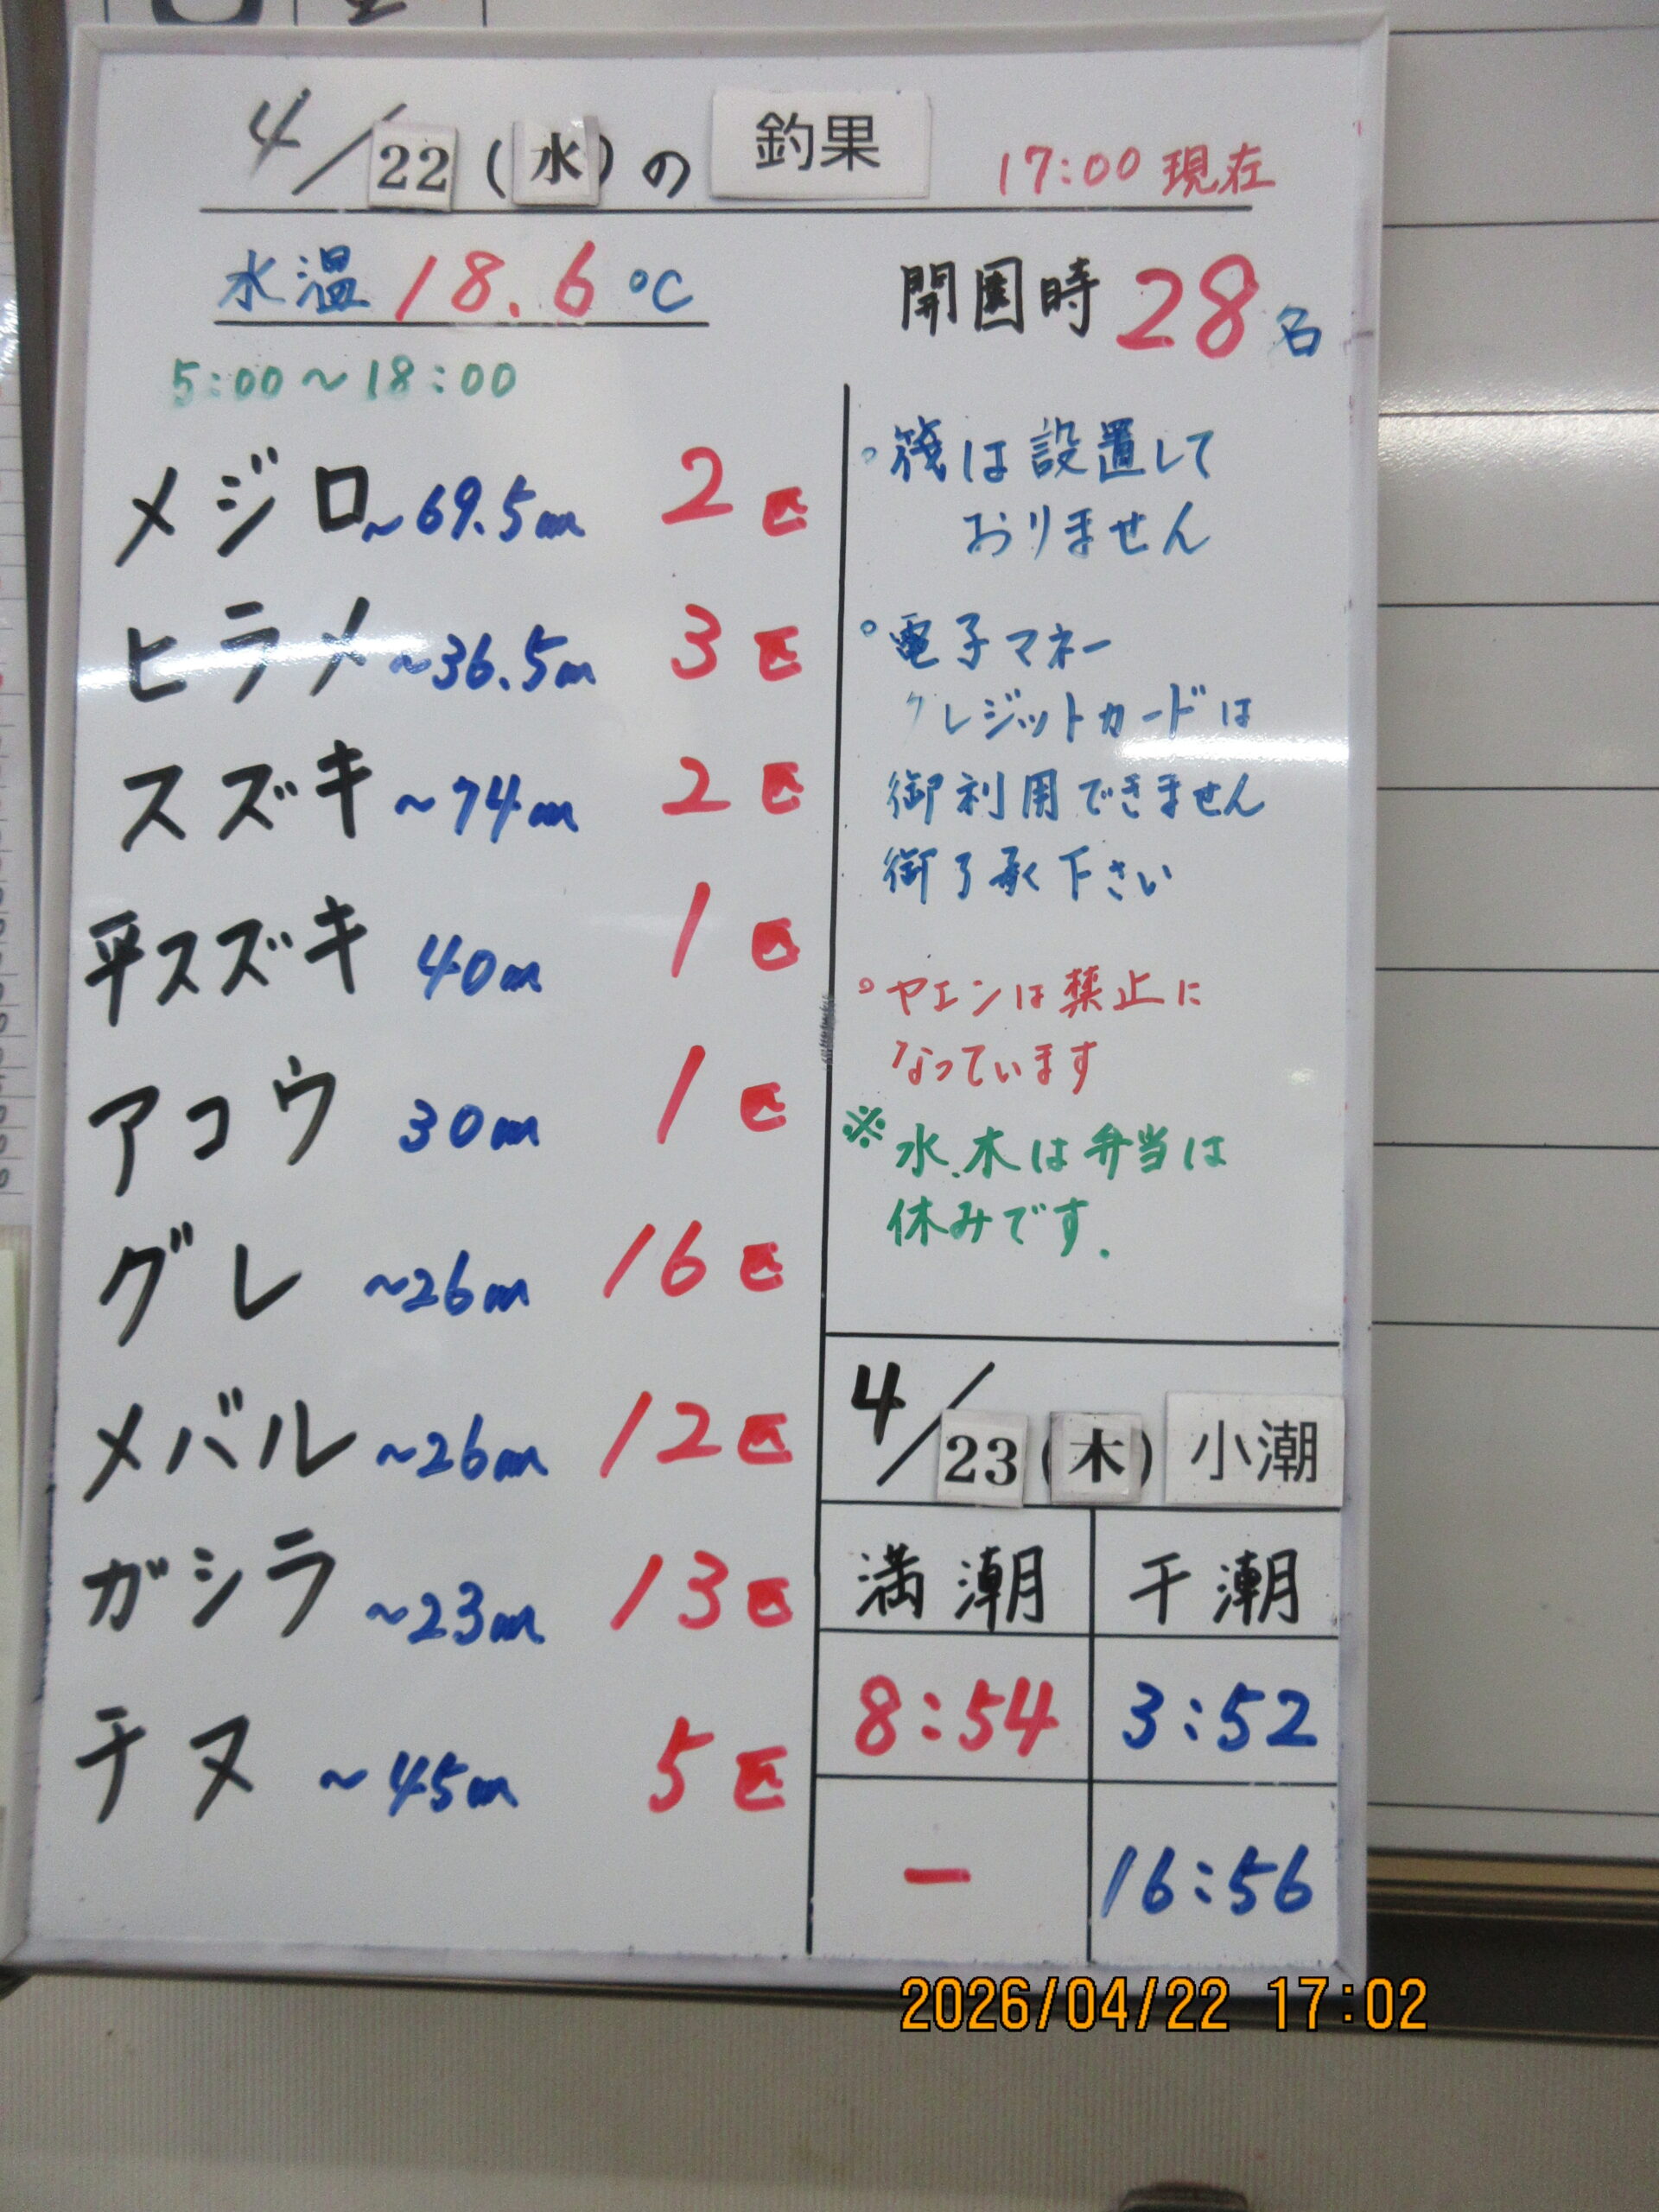 4/22(水)の 釣果 17:00 現在
水温 18.6 ℃
開園時 28名
5:00~18:00
メジロ ~69.5cm 2匹
ヒラメ ~36.5cm 3匹
スズキ ~74cm 2匹
平スズキ 40cm 1匹
アコウ 30cm 1匹
グレ ~26cm 16匹
メバル ~26cm 12匹
ガシラ ~23cm 13匹
チヌ ~45cm 5匹
。筏は設置して
おりません
。電子マネー
クレジットカードは
御利用できません
御了承下さい
。ヤエンは禁止に
なっています
※水.木は弁当は
休みです.
4/23(木) 小潮
満潮 干潮
8:54 3:52
ー 16:56
2026/04/22 17:02